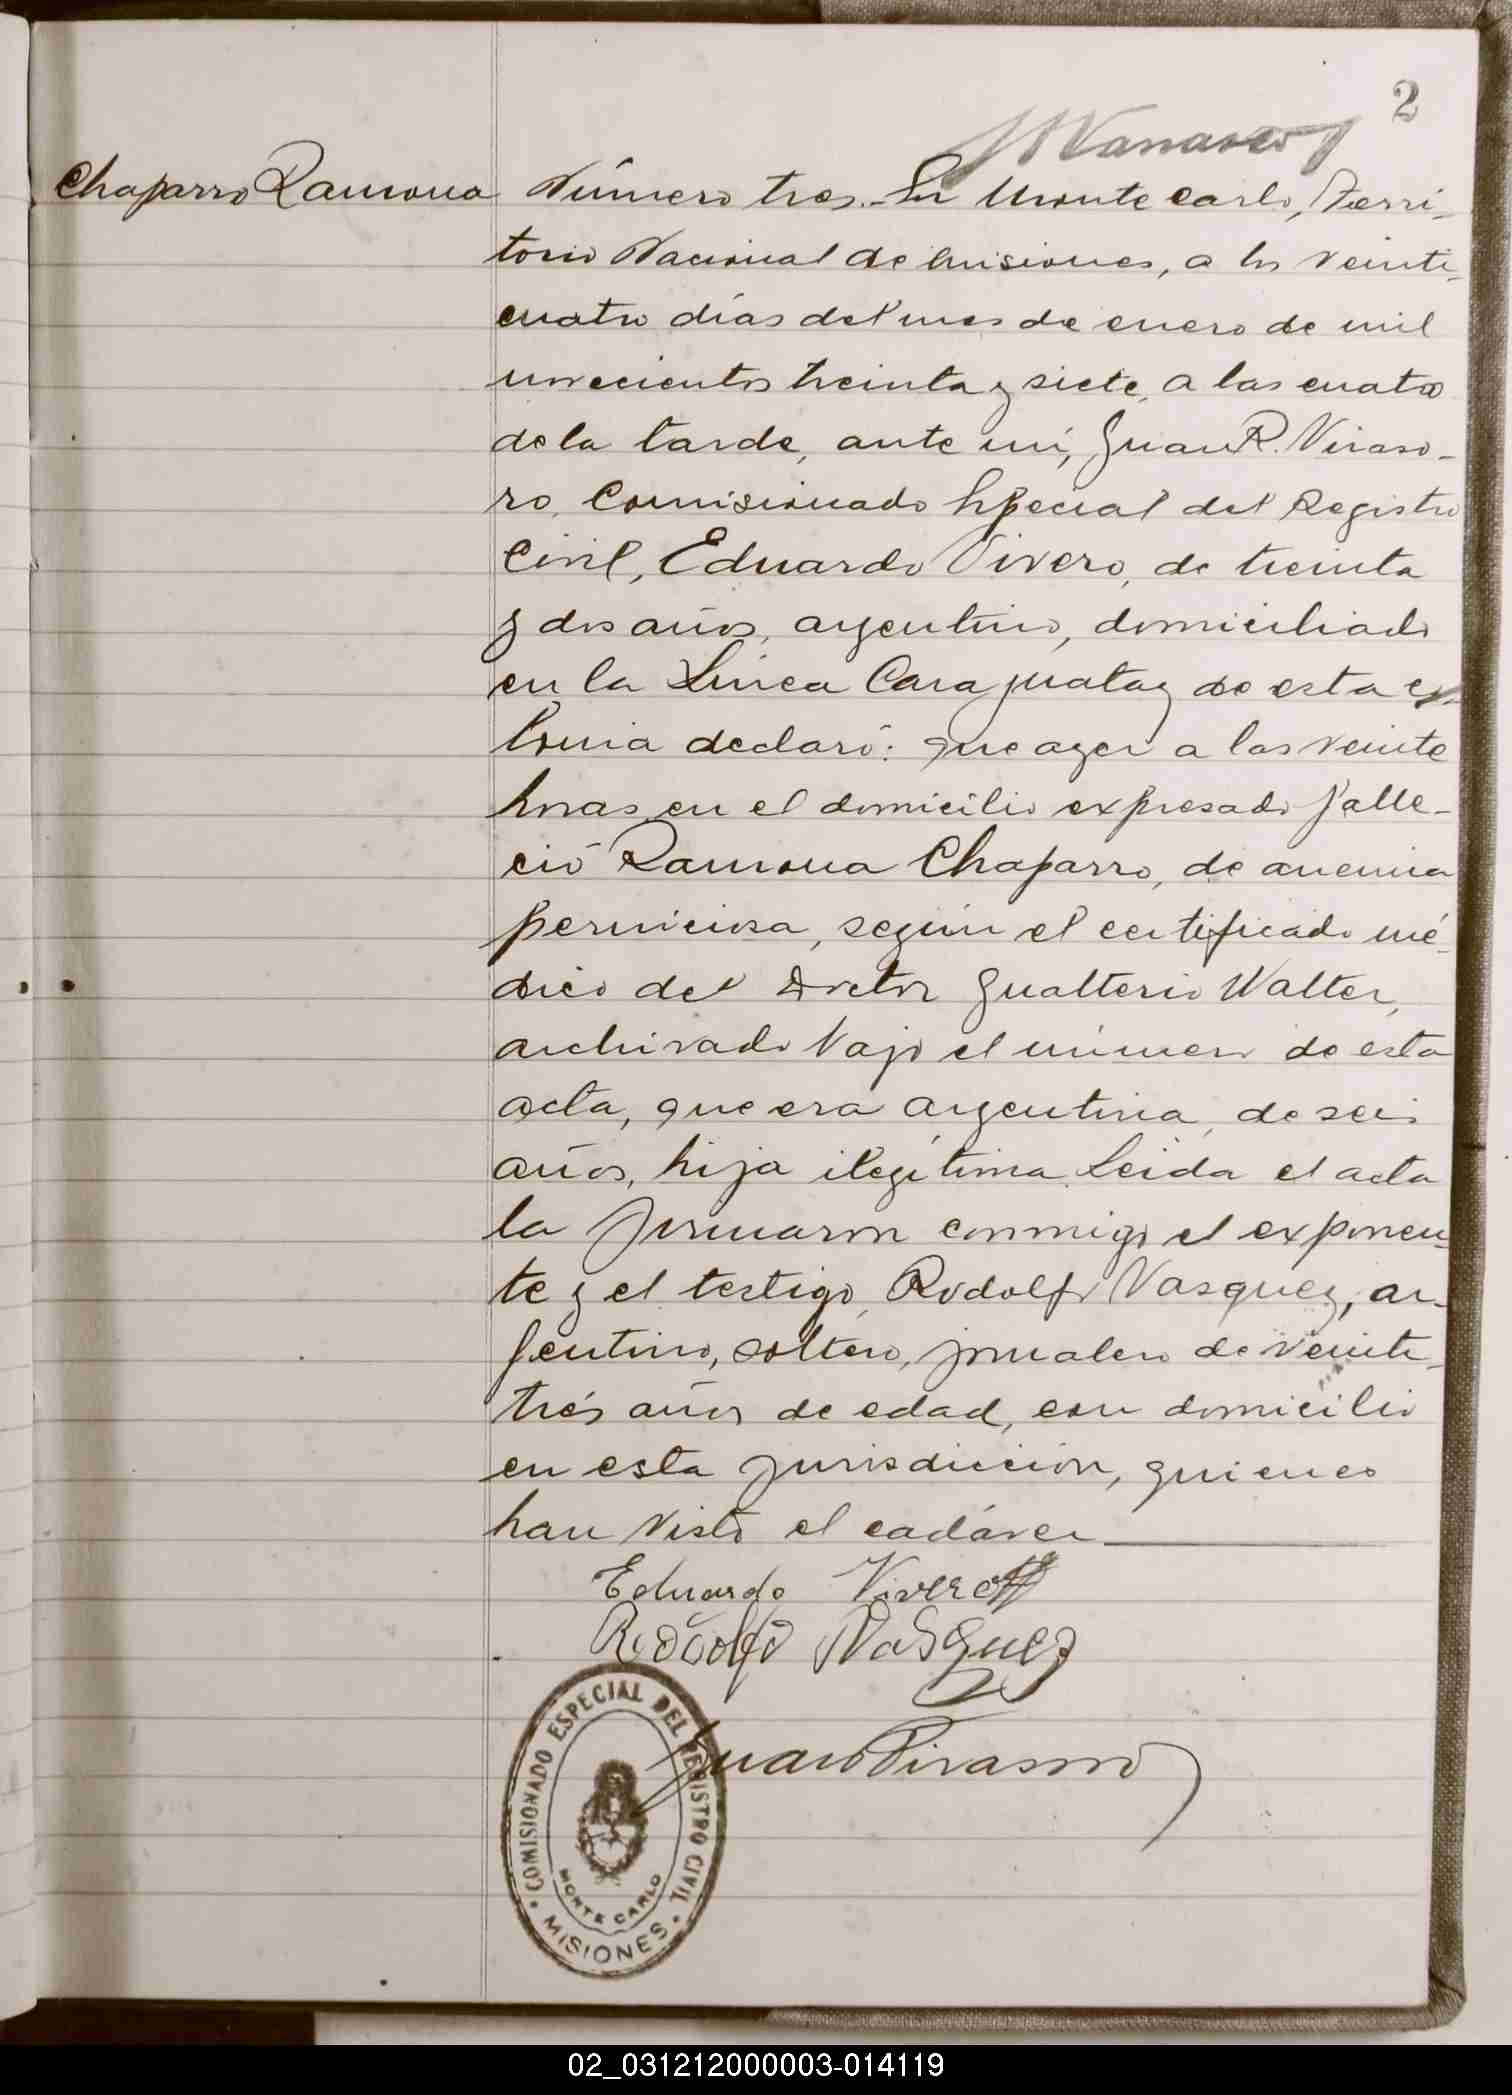 2
Chaparro Ramona
Número tres. En Monte Carlo, Terri-
torio Nacional de Misiones, a los veinti-
cuatro días del mes de enero de mil
novecientos treinta y siete, a las cuatro
de la tarde, ante mí, Juan R. Viraso-
ro, Comisionado Special del Registro
Civil, Eduardo Vivero, de treinta
y dos años, argentino, domiciliado
en la Línea Caraguatay de esta co-
lonia declaró: que ayer a las veinte
horas en el domicilio expresado falle-
ció Ramona Chaparro, de anemia
perniciosa, según el certificado mé-
dico del Doctor Gualterio Walter,
archivado vajo el número de esta
acta, que era argentina, de seis
años, hija ilegítima. Leída el acta
la firmaron conmigo el exponen-
te y el testigo, Rodolfo Vasquez, ar-
gentino, soltero, jornalero de veinti-
trés años de edad, con domicilio
en esta jurisdicción, quienes
han visto el cadáver
Eduardo Vivero
Rodolfo Vasquez
Juan Virasoro
COMISIONADO ESPECIAL DEL REGISTRO CIVIL
MONTE CARLO
MISIONES
02_031212000003-014119